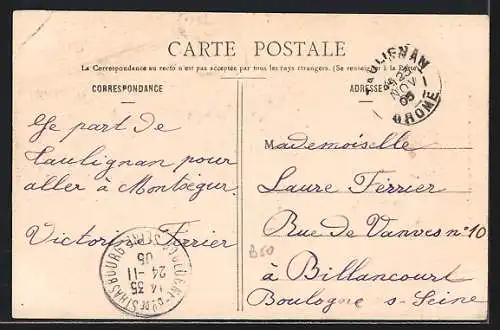 CARTE POSTALE
La Correspondance au recto n'est pas acceptée par tous les pays étrangers. (Se renseigner à la Poste)
CORRESPONDANCE
ADRESSE
TAULIGNAN
25
NOV
05
DROME
Je part de
Taulignan pour
aller à Montségur.
Victorin Ferrier
Mademoiselle
Laure Ferrier
Rue de Vanves n° 10
à Billancourt
Boulogne s-Seine
B50
Bd DE STRASBOURG
14 35
24-11
05